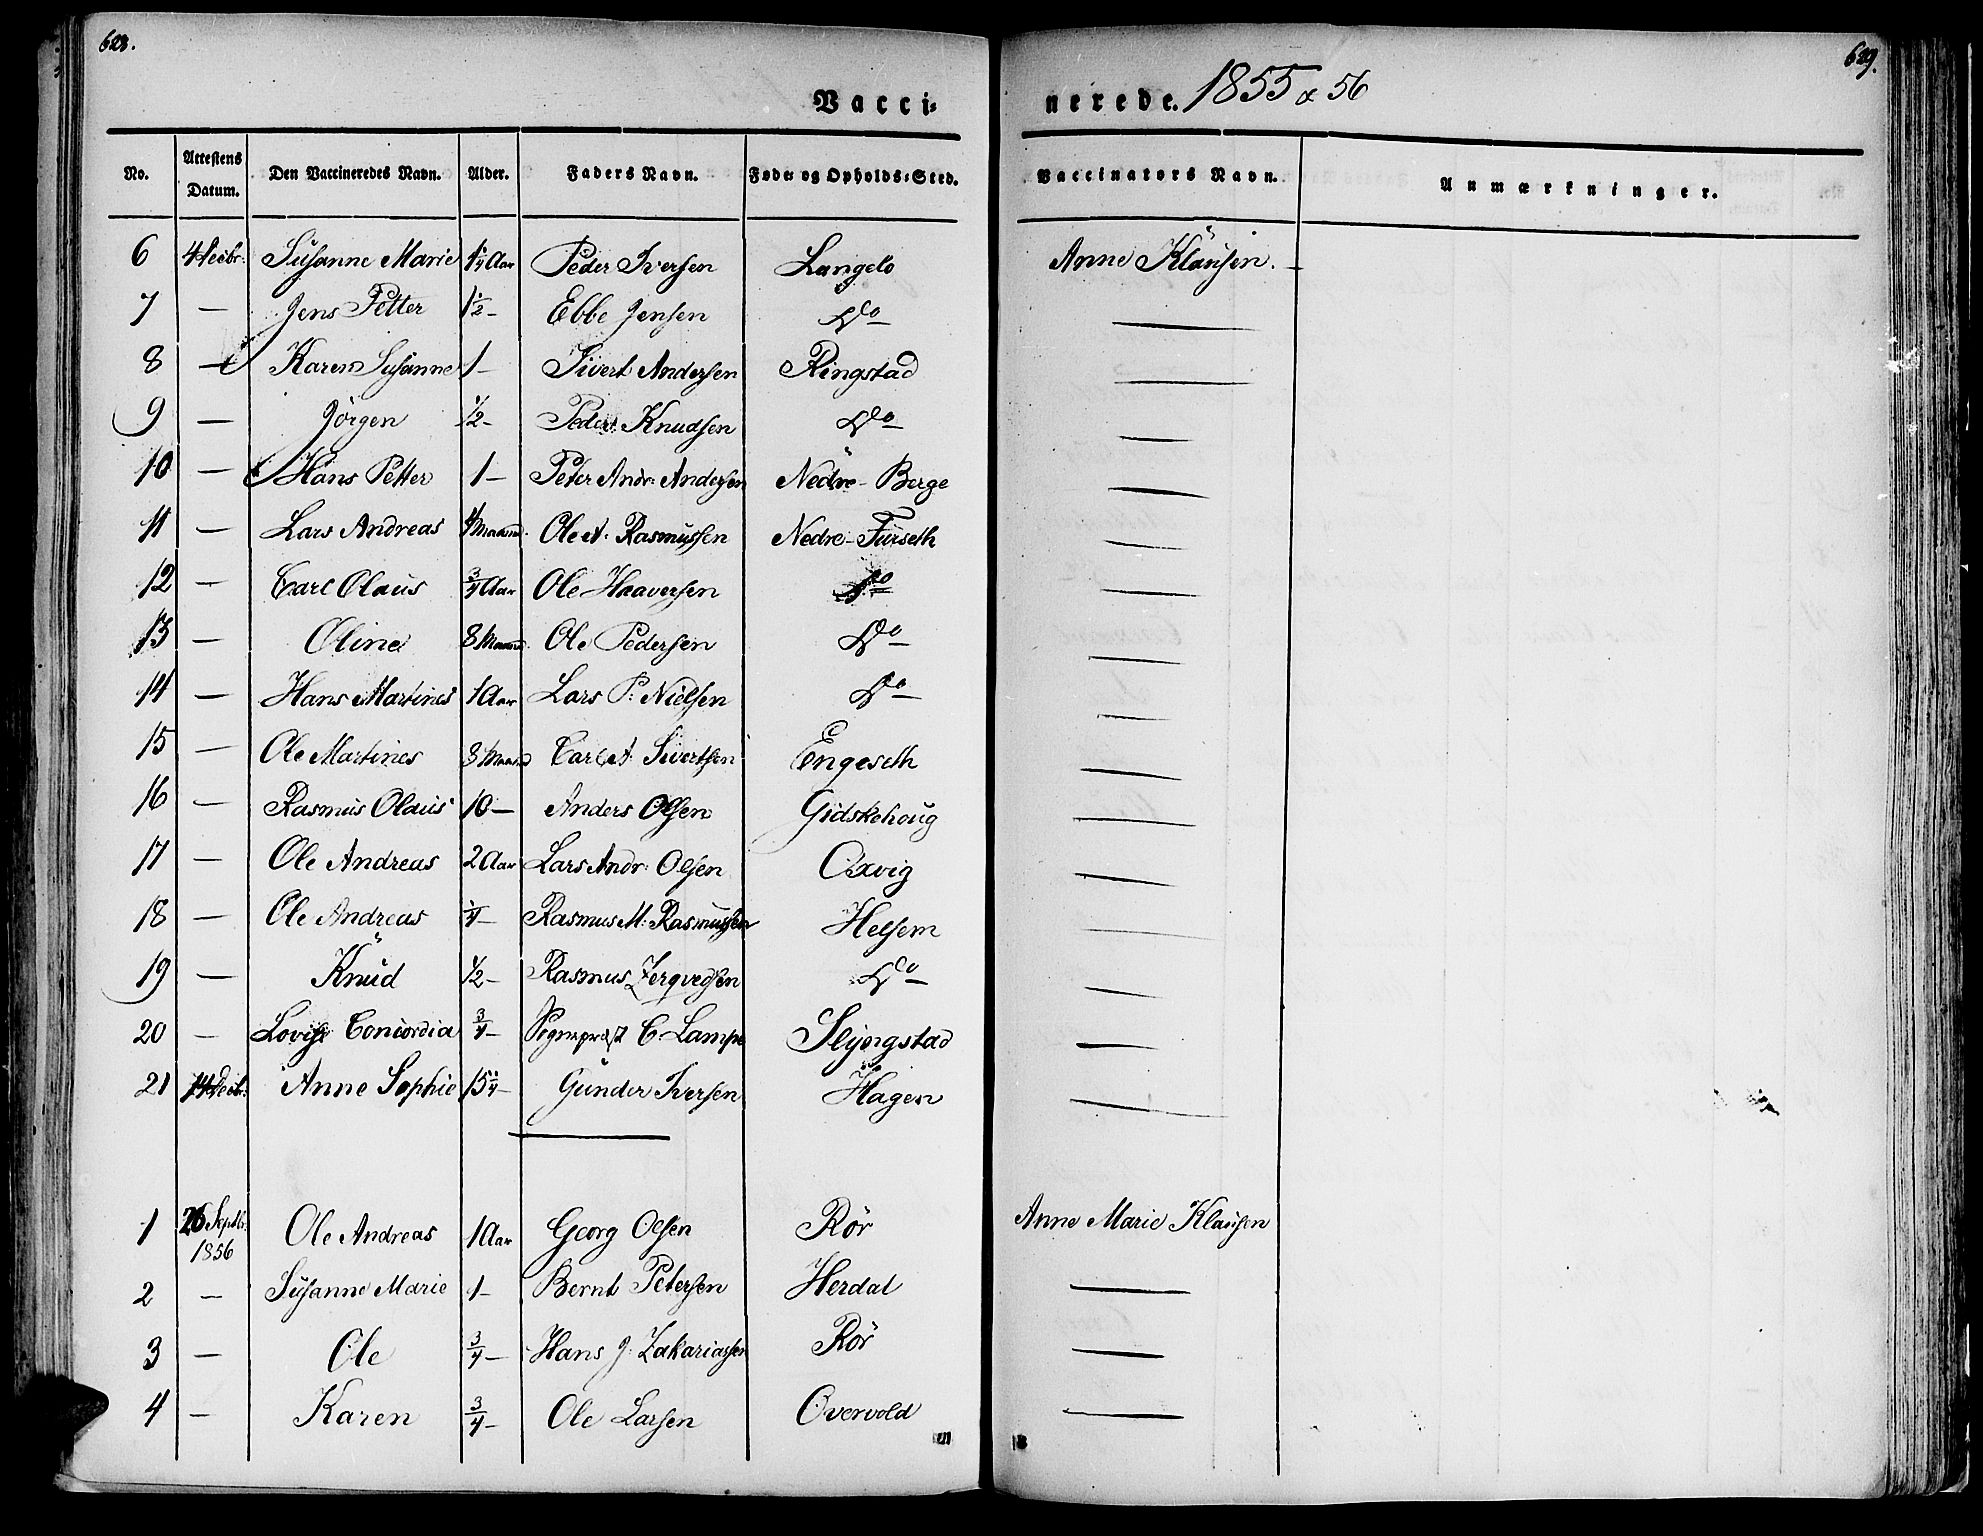 628.
629.
Vacci-
nerede. 1855 & 56
No. Attestens Datum. Den Vaccineredes Navn. Alder. Faders Navn. Føde- og Opholds-Sted. Vaccinators Navn. Anmærkninger.
6 4 Decbr: Susanne Marie 1 1/4 Aar Peder Iversen Langelo Anne Klausen. —
7 — Jens Petter 1 1/2 – Ebbe Jensen Do —
8 — Karen Susanne 1 – Sivert Andersen Ringstad —
9 — Jörgen 1/2 – Peder Knudsen Do —
10 — Hans Petter 1 – Peter Andr: Andersen Nedre-Berge —
11 — Lars Andreas 4 Maaned. Ole A. Rasmussen Nedre-Furseth —
12 — Carl Olaus 3/4 Aar Ole Haaversen Do —
13 — Oline 8 Maaned. Ole Pedersen Do —
14 — Hans Martines 1 Aar Lars P: Nielsen Do —
15 — Ole Martines 8 Maaned Carl A: Sivertsen Engeseth —
16 — Rasmus Olaus 10 — Anders Olsen Gidskehoug —
17 — Ole Andreas 2 Aar Lars Andr: Olsen Oxvig —
18 — Ole Andreas 1/4 – Rasmus M: Rasmussen Helsem —
19 — Knud 1/2 – Rasmus Do —
20 — Lovise Concordia 3/4 – Sognepræst C. Lampe Slyngstad —
21 14 Decbr: Anne Sophie 15 1/4 – Gunder Iversen Hagen —
1 26 Septbr. 1856 Ole Andreas 1 Aar Georg Olsen Rör Anne Marie Klausen
2 — Susanne Marie 1 – Bernt Petersen Herdal —
3 — Ole 3/4 – Hans J. Zakariassen Rör —
4 — Karen 3/4 – Ole Larsen Overvold —